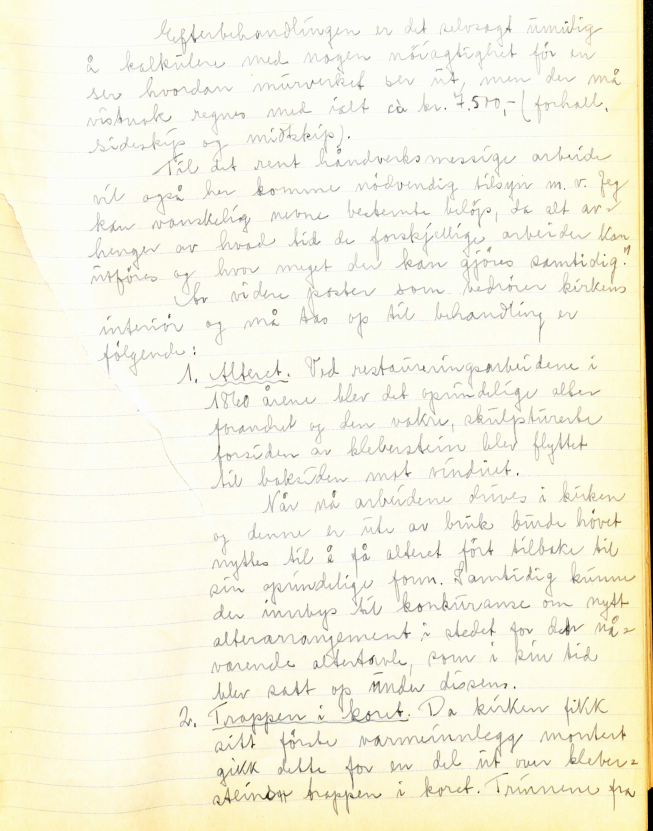 Efterbehandlingen er det selvsagt umulig
å kalkulere med nogen nöiagtighet för en
ser hvordan murverket ser ut, men der må
vistnok regnes med ialt ca kr. 7.500,- (forhall,
sideskip og midtskip).
Til det rent håndverksmessige arbeide
vil også her komme nödvendig tilsyn m. v. Jeg
kan vanskelig nevne bestemte belöp, da alt av-
henger av hvad tid de forskjellige arbeider kan
utföres og hvor meget der kan gjöres samtidig."
Av videre poster som vedrörer kirkens
interiör og må tas op til behandling er
fölgende:
1. Alteret. Ved restaureringsarbeidene i
1860 årene blev det oprindelige alter
forandret og den vakre, skulpturerte
forsiden av kleberstein blev flyttet
til baksiden mot vinduet.
Når nå arbeidene drives i kirken
og denne er ute av bruk burde hövet
nyttes til å få alteret fört tilbake til
sin oprindelige form. Samtidig kunne
der innbys til konkuranse om nytt
alterarrangement i stedet for den nå=
værende altertavle, som i sin tid
blev satt op under dissens.
2. Trappen i koret. Da kirken fikk
sitt förste varmeinnlegg montert
gikk dette for en del ut over kleber=
stein trappen i koret. Trinnene fra